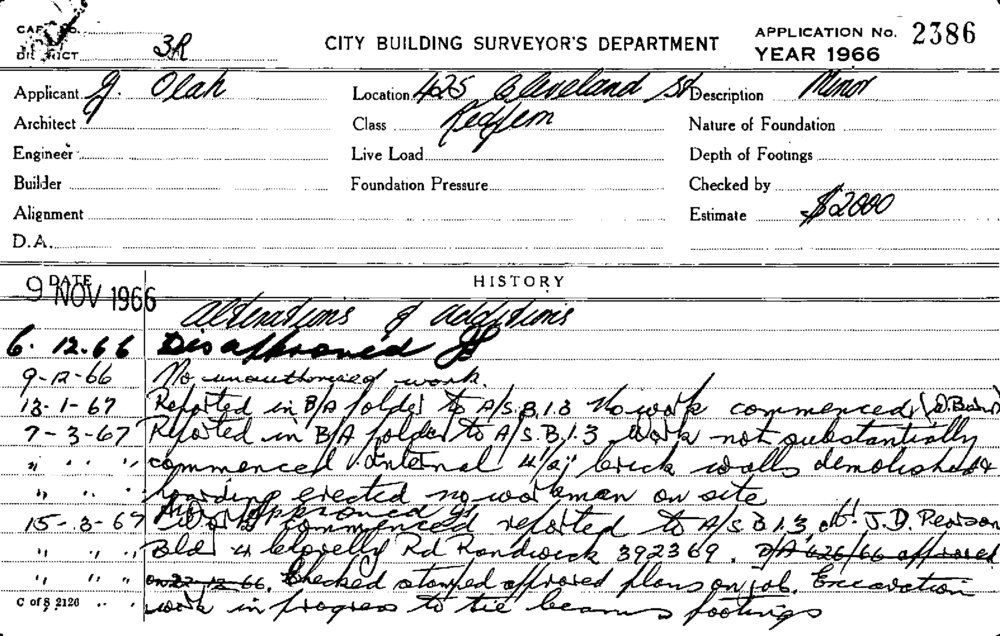 CARD No.
DISTRICT 3R
CITY BUILDING SURVEYOR'S DEPARTMENT
APPLICATION No. 2386
YEAR 1966
Applicant J. Olah
Location 425 Cleveland St
Description Minor
Architect
Class Redfern
Nature of Foundation
Engineer
Live Load
Depth of Footings
Builder
Foundation Pressure
Checked by
Alignment
Estimate $2000
D.A.
DATE HISTORY
9 NOV 1966
Alterations & additions
6. 12. 66 Disapproved
9-12-66 No unauthorised work.
13-1-67 Reported in B/A folder to A/S.B.13 No work commenced
7-3-67 Reported in B/A folder to A/S.B.1.3 Work not substantially
" " " commenced internal 4½" brick walls demolished &
" " " hoarding erected no workman on site
Approved
15-3-67 Work commenced reported to A/S B 1.3. J.D. Pearson
" " " Bld 4 Clovelly Rd Randwick 392369. D/A 626/66 approved
" " " on 22-12-66. Checked stamped approved plans on job. Excavation
C of S 2126 " " work in progress to tie beams footings